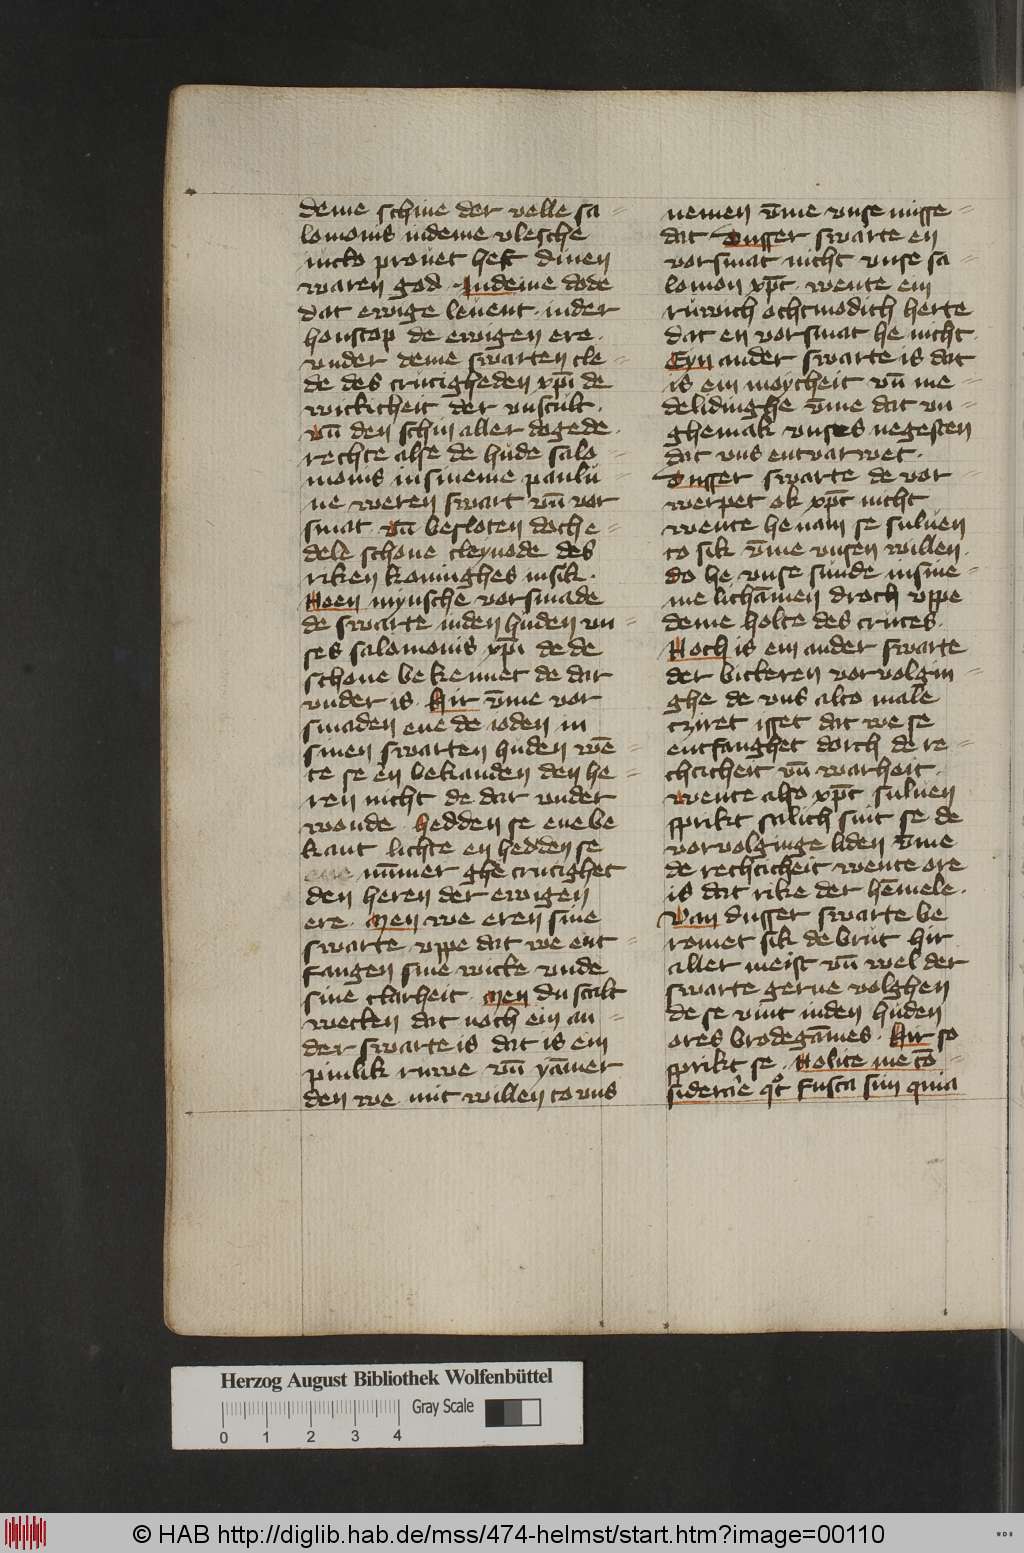 deme schine der velle sa =
lomonis indeme vlesche
nicto prouet heft dinen
waren god . Indeme dode
dat ewige leuent . inder
honscop de ewigen ere .
vnder deme swarten cle =
de des crucigheden xp̄i de
wickicheit der vnscult .
vn̄ den schin aller dogede .
rechte alse de hude salo =
monis in sineme paulu =
ne weren swart vn̄ vor
smat . vn̄ besloten doch e =
dele schone cleynode des
riken koninghes in sik .
Noen mynsche vorsmade
de swarte inden huden vn =
ses salomonis xp̄i de de
schone bekennet de dar
vnder is . Hir v̄me vor
smaden ene de ioden in
sinen swarten huden wē =
te se en bekanden den he =
ren nicht de dar vnder
wonde . hedden se ene be
kant lichte en hedden se
ere nūmer ghe crucighet
den heren der ewigen
ere . Men we eren sine
swarte vppe dat we ent =
fangen sine wicke vnde
sine clarheit . Men du scalt
wecken dat noch ein an =
der swarte is dat is ein
pinlik ruwe vn̄ yāmer
den we mit willen to vns
nemen v̄me vnse misse =
dat Dusser swarte en
vorsmat nicht vnse sa =
lomon xp̄c wente ein
ruwich ochtmodich herte
dat en vorsmat he nicht .
Eyn ander swarte is dat
is ein moycheit vn̄ me =
delidinghe v̄me dat vn =
ghemak vnses negesten
dat vns entvarwet .
Dusser swarte de vor =
werpet ok xp̄c nicht
wente he nam se suluen
to sik v̄me vnsen willen .
do he vnse sunde in sine =
me lichāmen droch vppe
deme holte des cruces .
Noch is ein ander swarte
der bickeren vorvolgin =
ghe de vns alto male
cziret isset dat we se
entfanghet dorch de re =
chticheit vn̄ warheit .
wente also xp̄c suluen
sprikt salich sint se de
vorvolginge liden v̄me
de rechticheit wente ore
is dat rike der hēmele .
Van dusser swarte be
romet sik de brut hir
aller meist vn̄ wel der
swarte gerne volghen
de se vint inden huden
ores brodegāmes . Hir so
sprikt se . Nolite me cō =
siderar̄e qͦ fusca sim quia
Herzog August Bibliothek Wolfenbüttel
Gray Scale
0 1 2 3 4
© HAB http://diglib.hab.de/mss/474-helmst/start.htm?image=00110